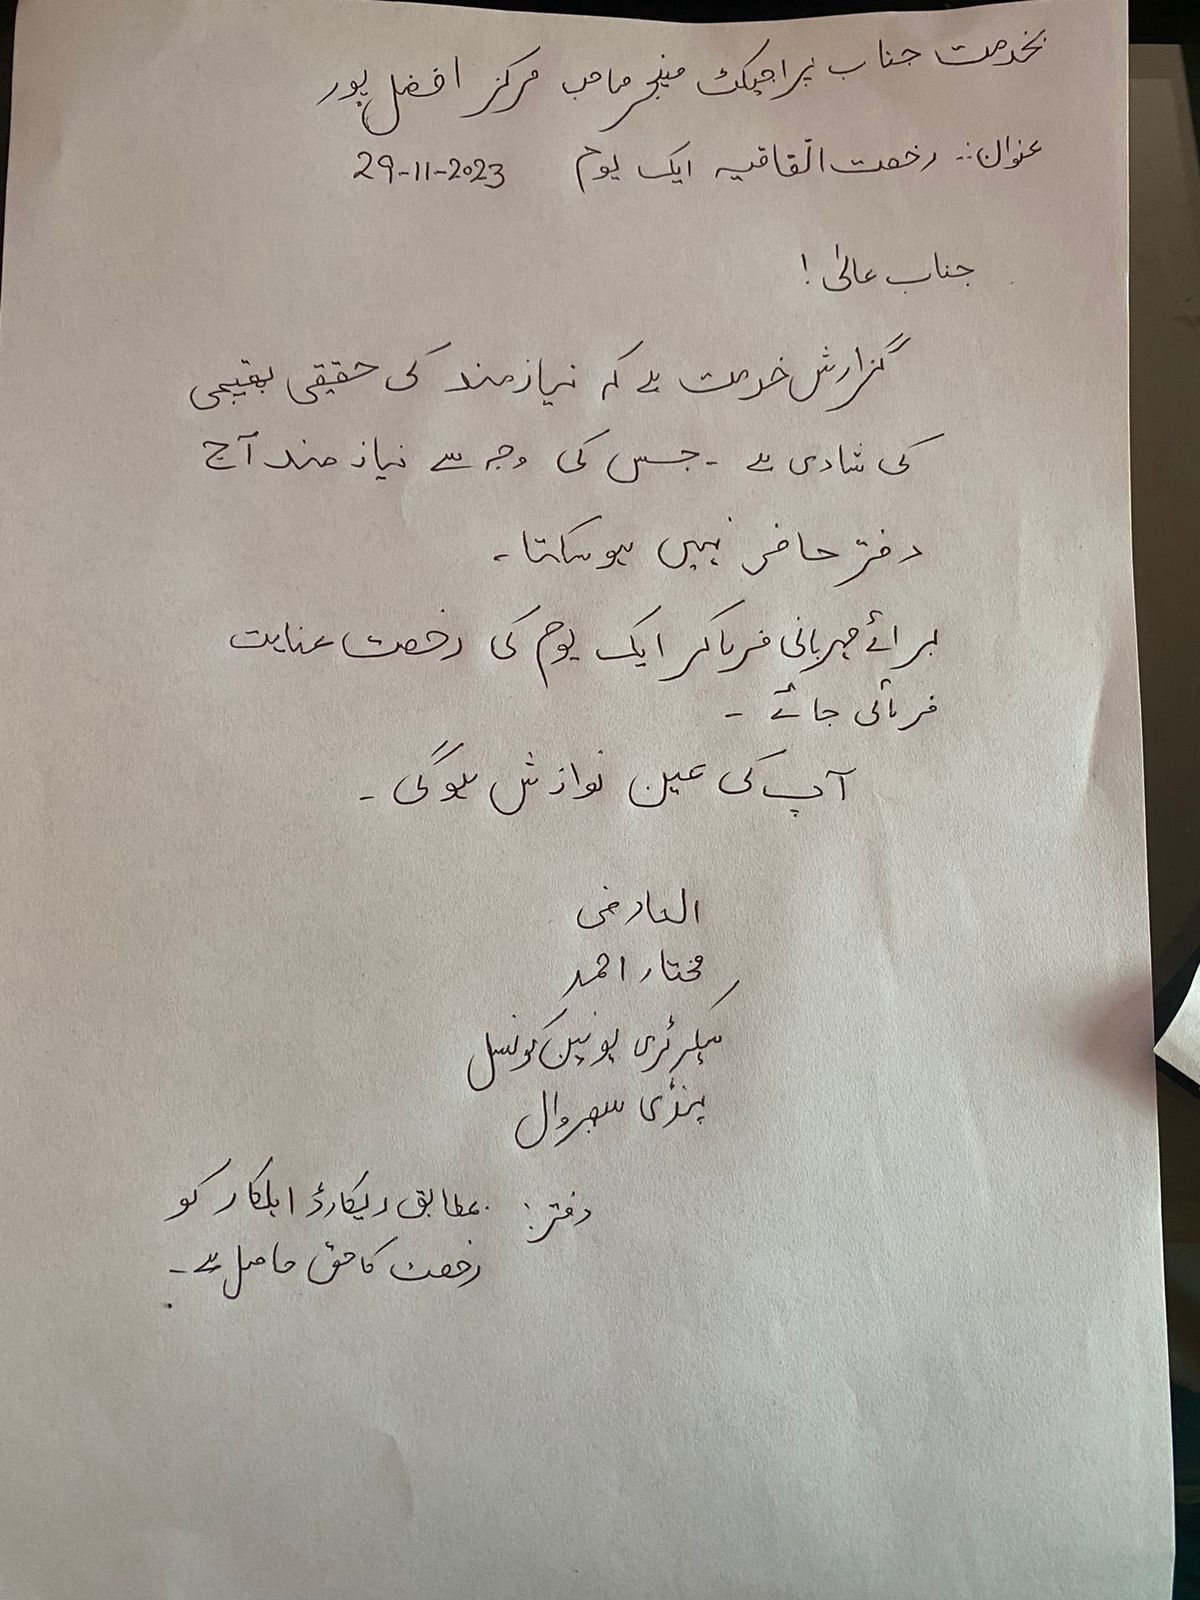 بخدمت جناب پراجیکٹ منیجر صاحب مرکز افضل پور
عنوان:۔ رخصت اتفاقیہ ایک یوم 29-11-2023
جناب عالیٰ !
گزارش خدمت ہے کہ نیازمند کی حقیقی بھتیجی
کی شادی ہے ۔ جس کی وجہ سے نیاز مند آج
دفتر حاضر نہیں ہوسکتا ۔
برائے مہربانی فرماکر ایک یوم کی رخصت عنایت
فرمائی جائے ۔
آپ کی عین نوازش ہوگی ۔
العارضی
مختار احمد
سیکرٹری یونین کونسل
پنڈی سبھروال
دفتر: بمطابق ریکارڈ اہلکار کو
رخصت کا حق حاصل ہے ۔